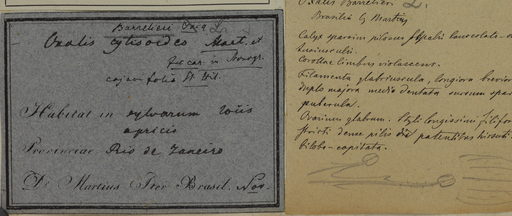 Barrelieri L.
Oxalis cytisoides Mart. et
Zuccar. in Monogr.
cojus folia
Habitat in sylvarum locis
apricis
Provinciae Rio de Janeiro
D. Martius Iter Brasil. Nov.
Oxalis Barrelieri L.
Brasilia leg Martius
Calyx sparsim pilosus sepalis lanceolatis
Corollae limbus violaceus.
Filamenta glabriuscula, longiora
duplo majora medio dentata sursum
puberula.
Ovarium glabrum. Styli longissimi filifor
stricti dense pilis patentibus hirsuti
bilobo-capitata.